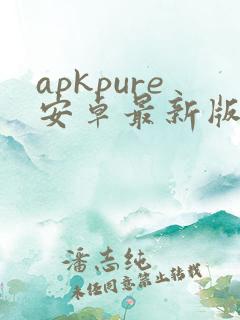 apkpure
安卓最新版
潘志纯
未任同意禁止转载